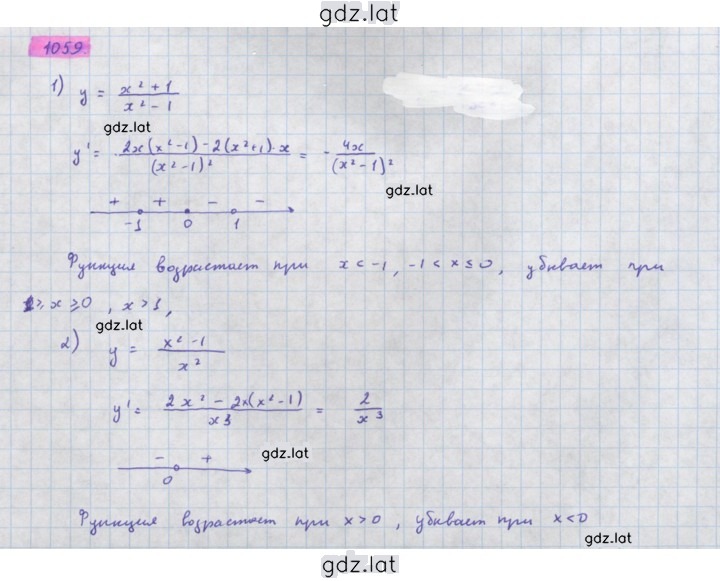 gdz.lat
1059.
1) y = (x² + 1)/(x² - 1)
gdz.lat
y' = (2x(x² - 1) - 2(x² + 1)·x)/(x² - 1)² = - 4x/(x² - 1)²
gdz.lat
+ + - -
-1 0 1
Функция возрастает при x < -1, -1 < x ≤ 0, убывает при
1 > x ≥ 0, x > 1,
gdz.lat
2) y = (x² - 1)/x²
y' = (2x² - 2x(x² - 1))/x³ = 2/x³
- +
gdz.lat
0
Функция возрастает при x > 0, убывает при x < 0
gdz.lat
gdz.lat